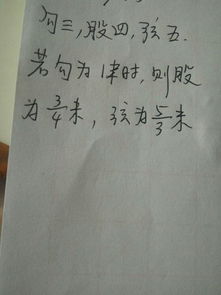 勾三,股四,弦五.
若勾为1时,则股
为3/4米,弦为5/3米